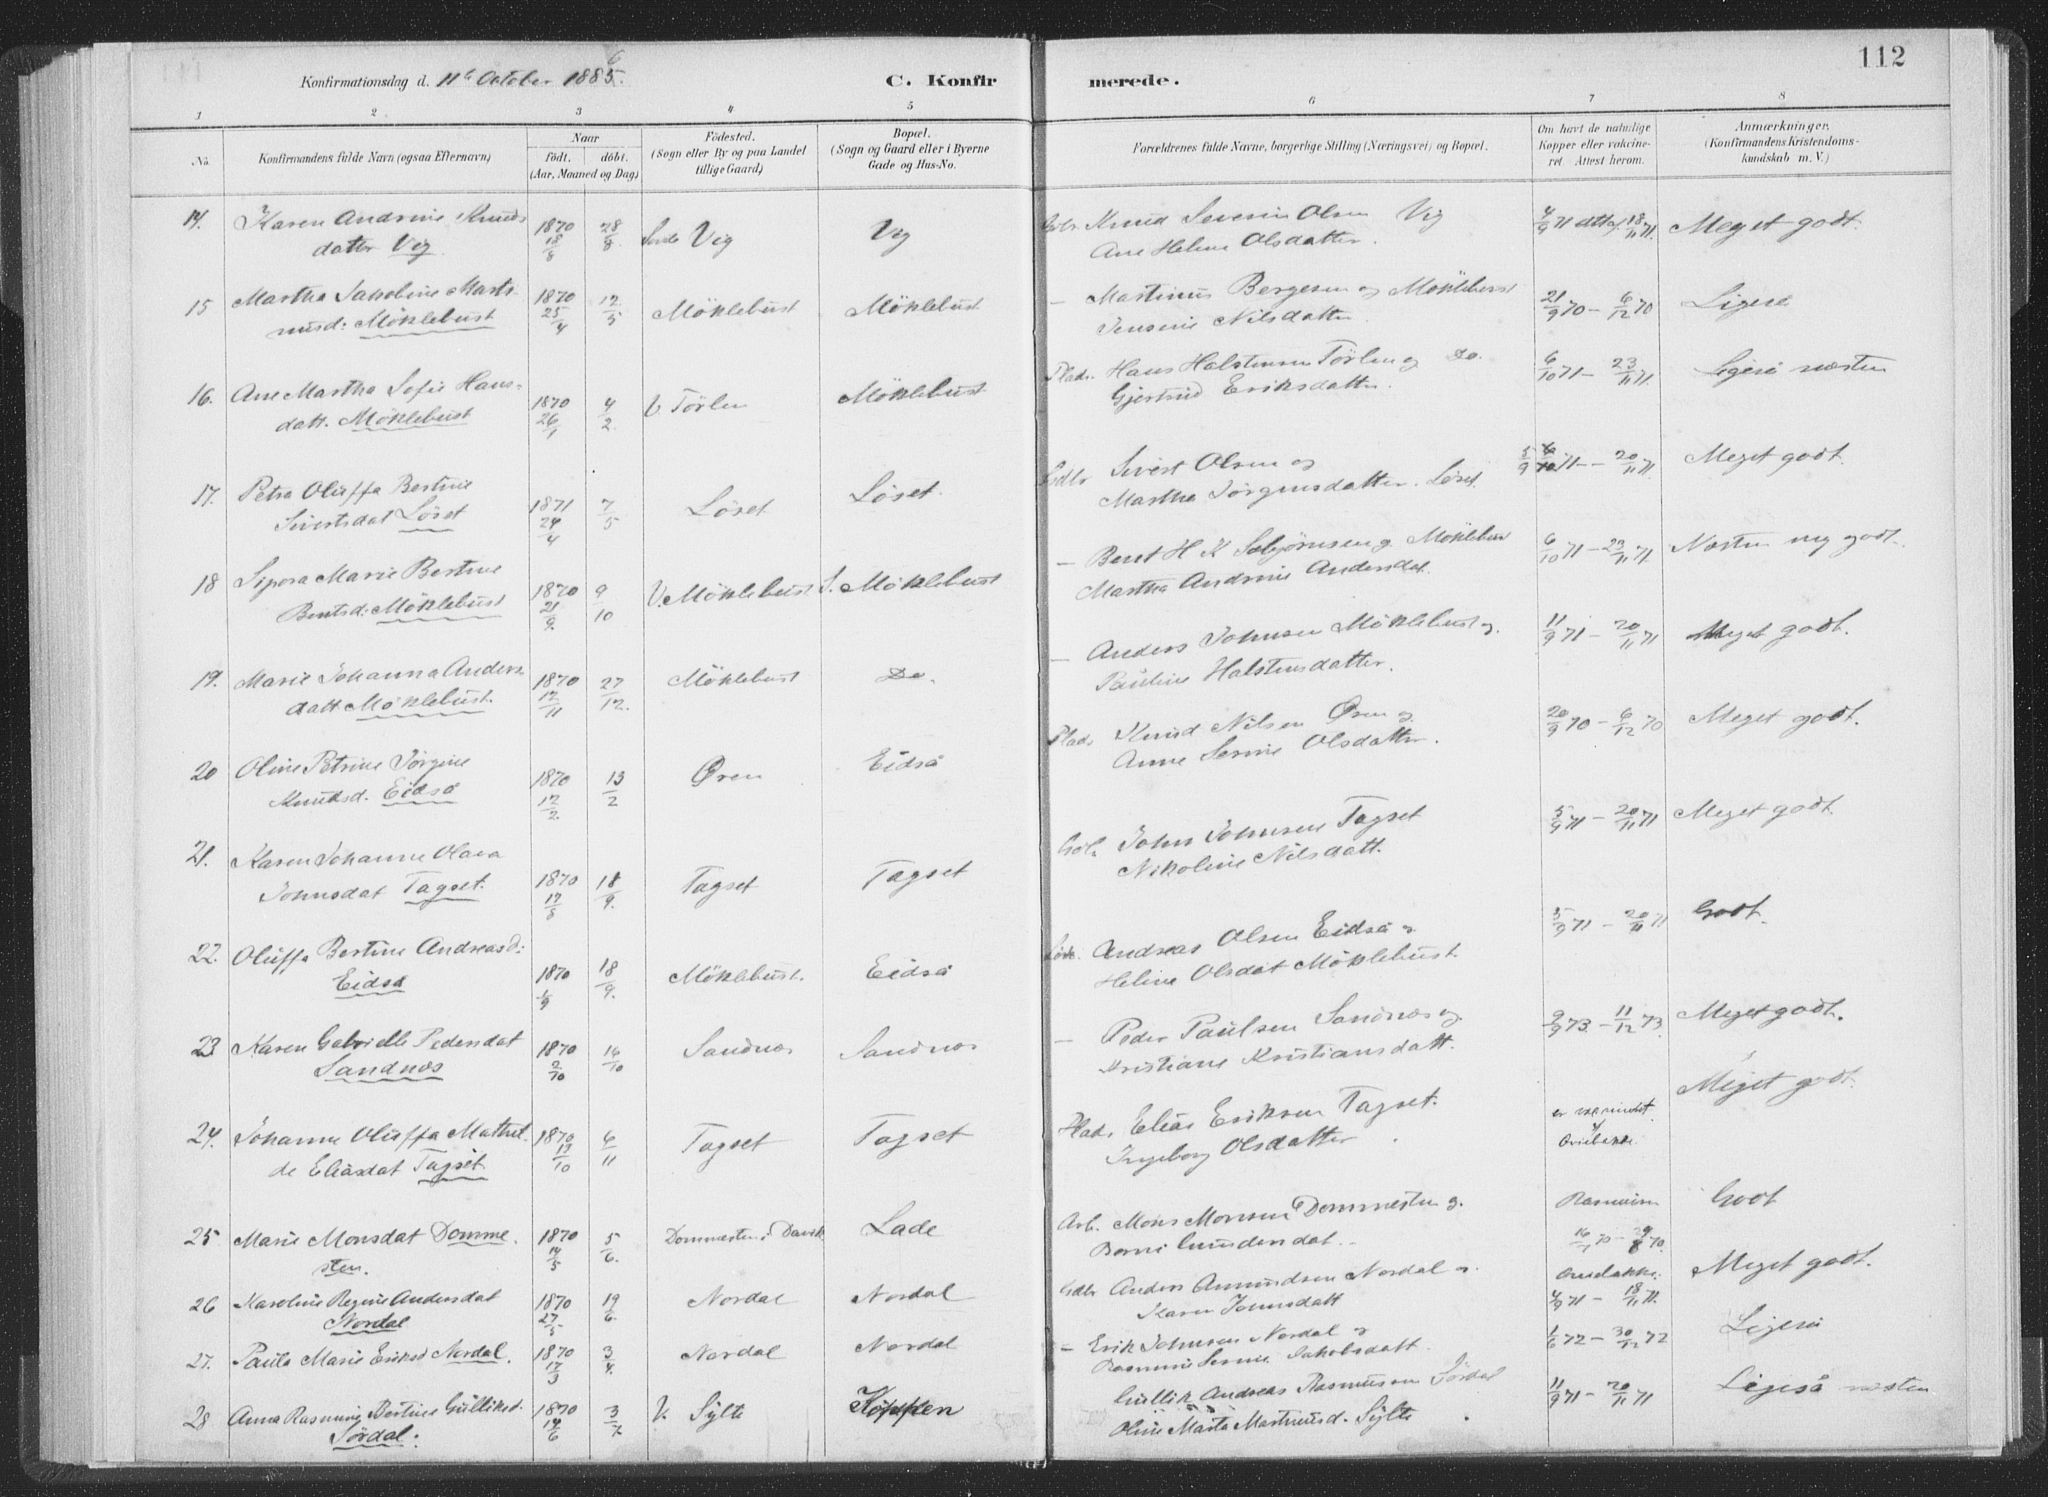 112
Konfirmationsdag d. 11te October 1885. 6
C. Konfirmerede.
1 2 3 4 5 6 7 8
No.
Konfirmandens fulde Navn (ogsaa Efternavn)
Naar
födt. döbt.
(Aar, Maaned og Dag)
Födested.
(Sogn eller By og paa Landet
tillige Gaard)
Bopæl.
(Sogn og Gaard eller i Byerne
Gade og Hus-No.
Forældrenes fulde Navne, borgerlige Stilling (Næringsvei) og Bopæl.
Om havt de natulige
Kopper eller vakcine-
ret. Attest herom.
Anmærkninger.
(Konfirmandens Kristendoms-
kundskab m. V.)
14. Karen Andrine Knuds 1870 28 Vig Vig Knud Severin Olsen Vig 4/9 71 18/11 71. Meget godt.
datter Vig 18/8 8. Ane Heline Olsdatter.
15 Martha Jakobine Marti- 1870 12 Möklebust Möklebust — Martinus Bergesen og Möklebust 21/9 70 – 6/12 70 Ligeså
nusd: Möklebust 25/4 5 Jensine Nilsdatter
16. Ane Martha Sofie Hans- 1870 4 V. Törlen Möklebust Plads. Hans Halstensen Törlen og Do. 6/10 71 – 23/11 71. Ligeså næsten
datt. Möklebust 26/1 2. Gjertrud Eriksdatter.
17. Petra Oluffa Bertine 1871 7 Löset Löset. Gdbr Sivert Olsen og 5/9 71 – 20/11 71. Meget godt.
Sivertsdat Löset 24/4 5 Martha Jörgensdatter. Löset.
18 Sipora Marie Bertine 1870 9 V. Möklebust S. Möklebust — Bent H K Möklebust 6/10 71 – 23/11 71. Næsten mg godt.
Bentsd: Möklebust 21/9. 10 Martha Andrine Andersdat.
19. Marie Johanna Anders 1870 27 Möklebust Do. — Anders Johnsen Möklebust og 11/9 71 – 20/11 71 Meget godt.
datt Möklebust. 12/11 12. Pauline Halstensdatter.
20 Oline Petrine Jörgine 1870 13 Øren Eidså Plads Knud Nilsen Øren og 20/9 70 – 6/12 70 Meget godt.
Knudsd. Eidså 12/2 2 Anne Serine Olsdatter.
21. Karen Johanne Olava 1870 18 Tagset Tagset John Johnsen Tagset 5/9 71 – 20/11 71 Meget godt.
Johnsdat Tagset. 17/8 9. Nikoline Nilsdatt.
22. Oluffa Bertine Andreasd: 1870 18 Möklebust. Eidså Andreas Olsen Eidså og 5/9 71 – 20/11 71 Godt.
Eidså 1/9 9. Heline Olsdat Möklebust.
23 Karen Gabrielle Pedersdat 1870 16 Sandnæs Sandnæs — Peder Paulsen Sandnæs og 9/9 73 – 11/12 73. Meget godt.
Sandnæs 2/10 10 Kristiane Kristiansdatt.
24. Johanne Oluffa Mathil- 1870 6 Tagset Tagset Plads Elias Eriksen Tagset. er vaccineret Meget godt.
de Eliasdat Tagset 17/10 11 Ingeborg Olsdatter
25 Marie Monsdat Domme- 1870 5 Dommesten i Davik Lade Arb. Mons Monsen Dommesten og. Rasmusen Godt
sten. 14/5 6. 16/1 70 – 29/8 70.
26 Karoline Regine Andersdat 1870 19 Nordal Nordal Gdbr Anders Amundsen Nordal og 4/9 71 – 18/11 71. Meget godt.
Nordal 27/5 6. Karen Johnsdatt
27. Paula Marie Eriksd Nordal. 1870 3 Nordal Nordal — Erik Johnsen Nordal og 1/6 72 – 30/12 72 Ligeså
17/3 4. Rasmine Serine Jakobsdatt.
28 Anna Rasmine Bertine Gulliksd. 1870 3 V. Sylte Koppen Gullik Andreas Rasmusen Sördal 11/9 71 – 20/11 71 Ligeså næsten
Sördal. 14/6 7 Oline Marta Martinusd. Sylte